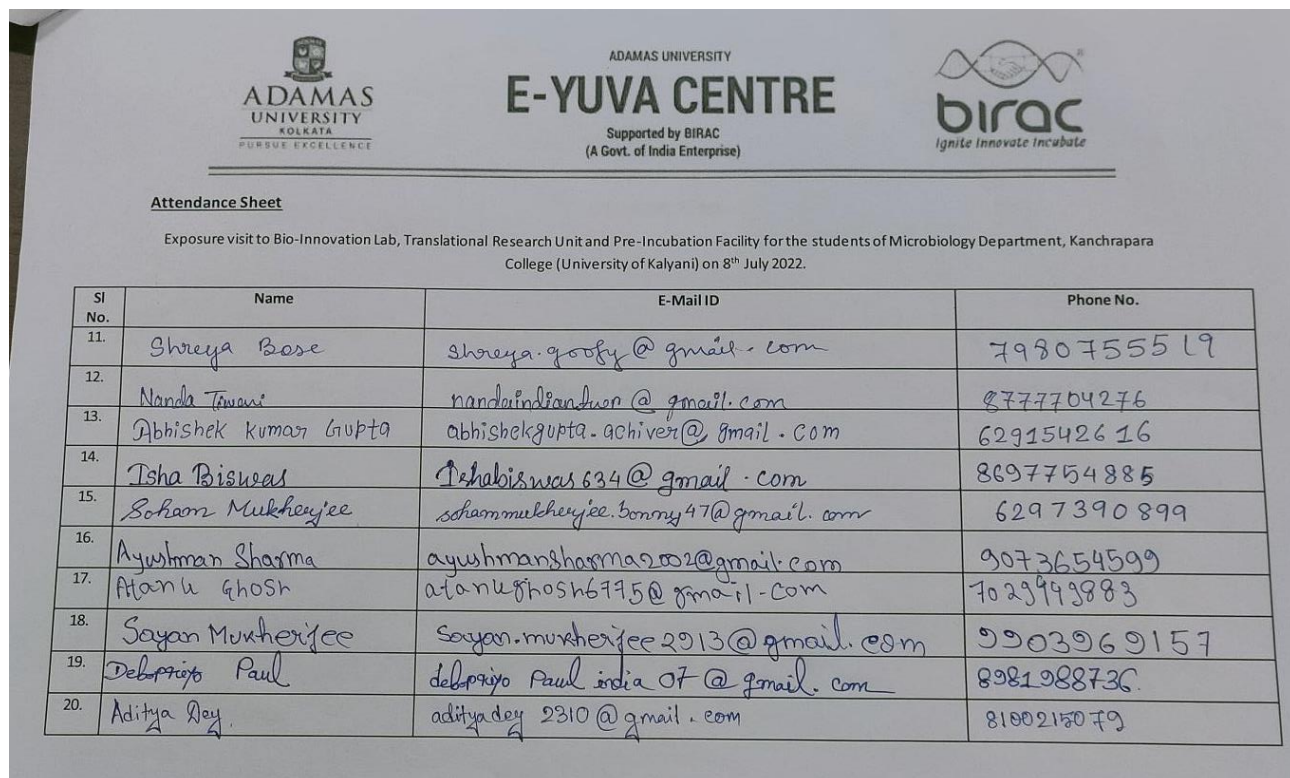 ADAMAS
UNIVERSITY
KOLKATA
PURSUE EXCELLENCE
ADAMAS UNIVERSITY
E-YUVA CENTRE
Supported by BIRAC
(A Govt. of India Enterprise)
birac
Ignite Innovate Incubate
Attendance Sheet
Exposure visit to Bio-Innovation Lab, Translational Research Unit and Pre-Incubation Facility for the students of Microbiology Department, Kanchrapara
College (University of Kalyani) on 8th July 2022.
Sl No. Name E-Mail ID Phone No.
11. Shreya Bose shreya.goofy@gmail.com 7980755519
12. Nanda Tiwari 8777704276
13. Abhishek Kumar Gupta abhishekgupta.achiver@gmail.com 6291542616
14. Isha Biswas Ishabiswas634@gmail.com 8697754885
15. Soham Mukherjee sohammukherjee.bonny47@gmail.com 6297390899
16. Ayushman Sharma ayushmansharma2002@gmail.com 9073654599
17. Atanu Ghosh atanughosh6775@gmail.com 7029949883
18. Sayan Mukherjee Sayan.mukherjee2913@gmail.com 9903969157
19. Debopriyo Paul debopriyo Paul india 07@gmail.com 8981988736.
20. Aditya Dey. adityadey 2310@gmail.com 8100215079